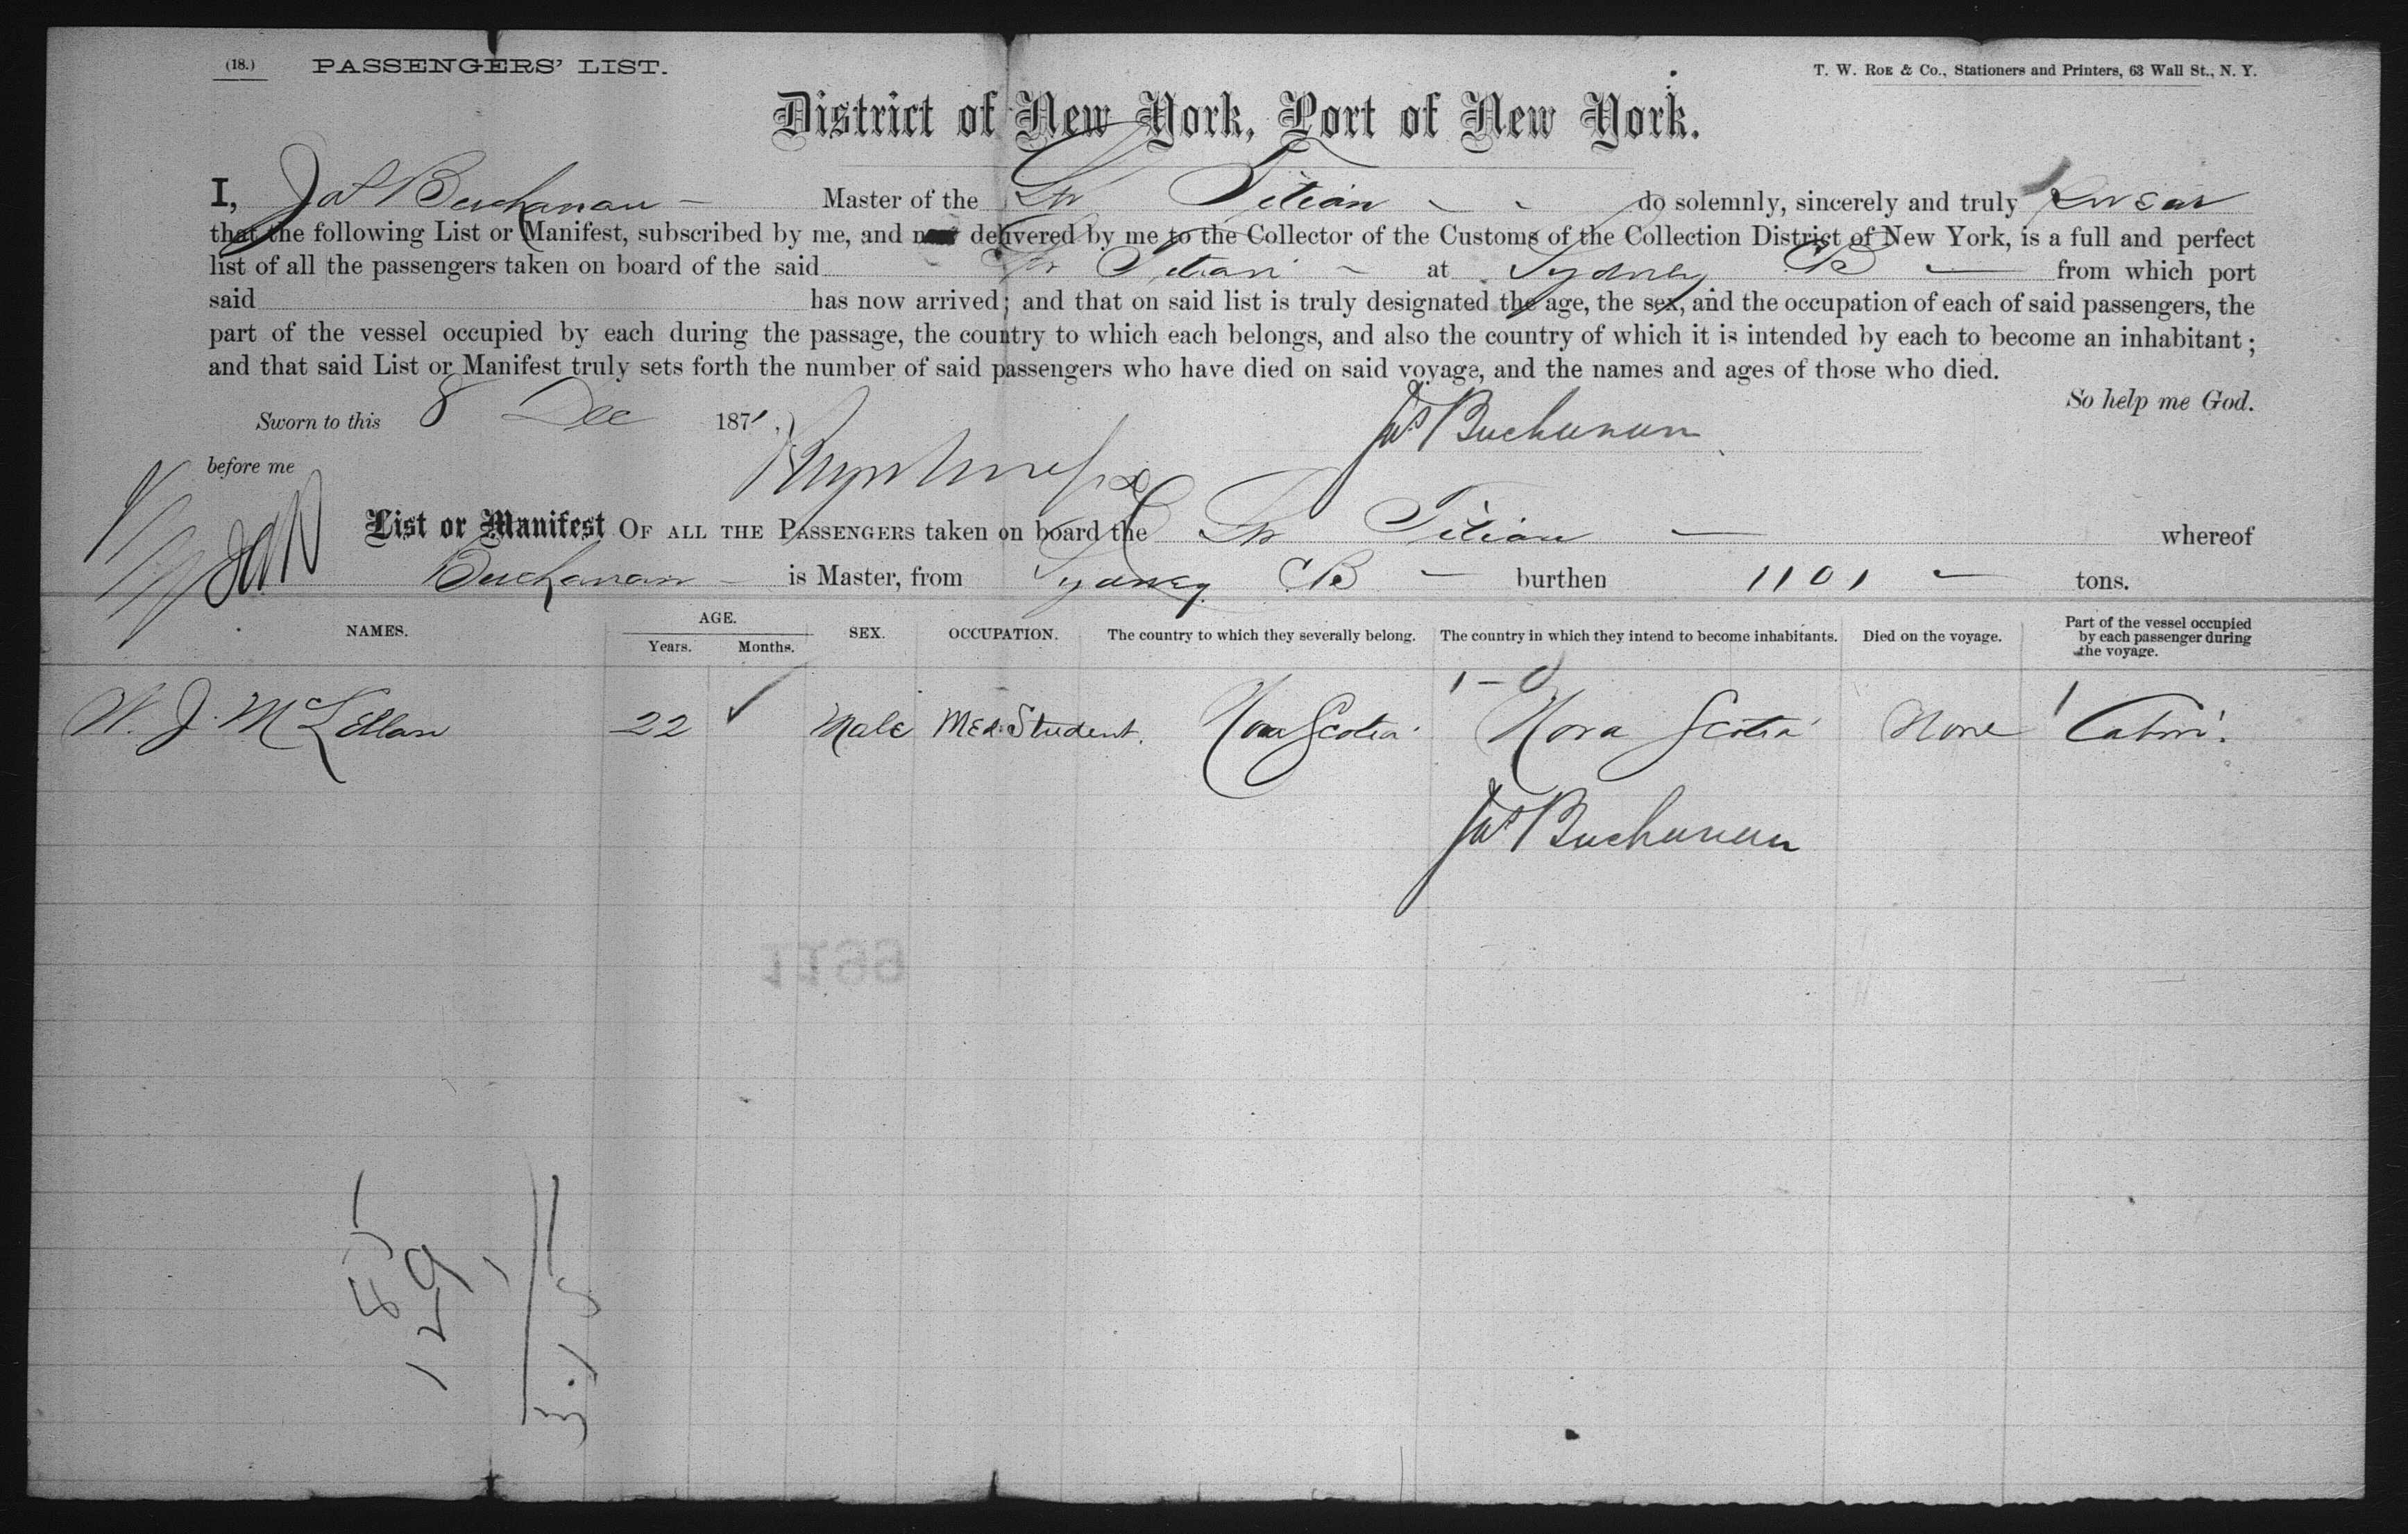 (18.) PASSENGERS' LIST.
T. W. ROE & Co., Stationers and Printers, 63 Wall St., N. Y.
District of New York, Port of New York.
I, Jas Buchanan Master of the Str Titian do solemnly, sincerely and truly swear
that the following List or Manifest, subscribed by me, and now delivered by me to the Collector of the Customs of the Collection District of New York, is a full and perfect
list of all the passengers taken on board of the said Str Titian at Sydney CB from which port
said has now arrived; and that on said list is truly designated the age, the sex, and the occupation of each of said passengers, the
part of the vessel occupied by each during the passage, the country to which each belongs, and also the country of which it is intended by each to become an inhabitant;
and that said List or Manifest truly sets forth the number of said passengers who have died on said voyage, and the names and ages of those who died.
So help me God.
Sworn to this 8 Dec 187
Jas Buchanan
before me
List or Manifest OF ALL THE PASSENGERS taken on board the Str Titian whereof
Jas Buchanan is Master, from Sydney CB burthen 1101 tons.
NAMES. AGE. Years. Months. SEX. OCCUPATION. The country to which they severally belong. The country in which they intend to become inhabitants. Died on the voyage. Part of the vessel occupied by each passenger during the voyage.
1-0
W. J. McLellan 22 ✓ Male Med. Student. Nova Scotia Nova Scotia None 1 Cabin.
Jas Buchanan
1199
129